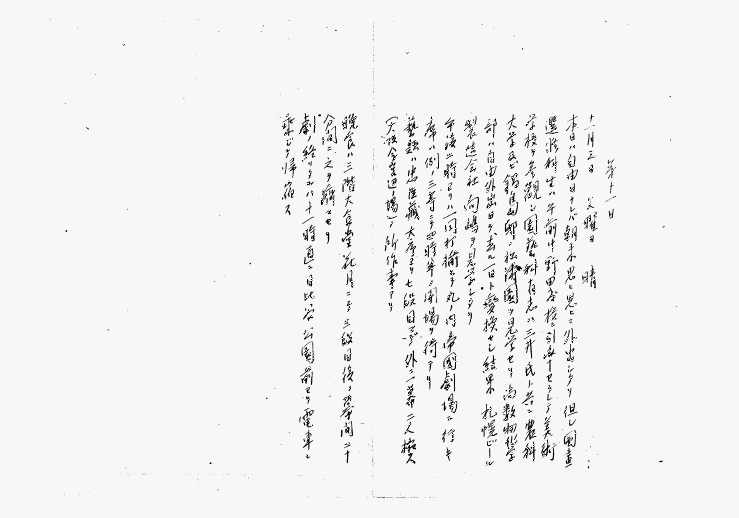 第十一日
十一月三日 火曜日 晴
本日ハ自由日ナレバ朝ヨリ思ヒ思ヒニ外出シタリ 但し図画
選修科生ハ午前中野田 セラレテ美術
学校ヲ参観シ園藝科有志ハ三井氏ト共ニ農科
大学及ビ鍋島邸ノ 園ヲ見学セリ 尚数物化学
部ハ自由外出日ヲ去ル一日ト変換セシ結果札幌ビール
製造会社 向嶋ヲ見学シタリ
午後二時ヨリハ一同打揃ヒテ丸ノ内帝國劇場ニ行キ
席ハ例ノ三等ニテ四時半ノ開場ヲ待テリ
藝題ハ忠臣蔵大序ヨリ七段目マデ外ニ一幕二人椀久
(大阪 ノ場)ノ所作事ナリ
晩食ハ三階大食堂花月ニテ三段目後ノ幕間二十
分間ニ之ヲ 
劇ノ終リタルハ十一時過ニ日比谷公園前ヨリ電車ニ
乗ジテ帰宿ス